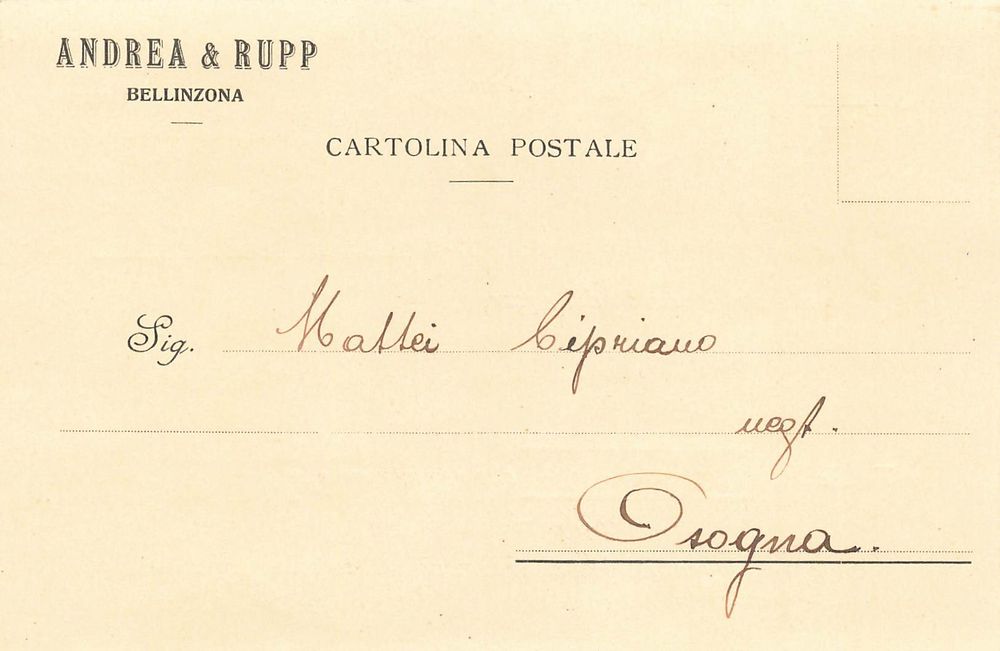 ANDREA & RUPP
BELLINZONA
CARTOLINA POSTALE
Sig. Mattei Cipriano
negt.
Osogna.